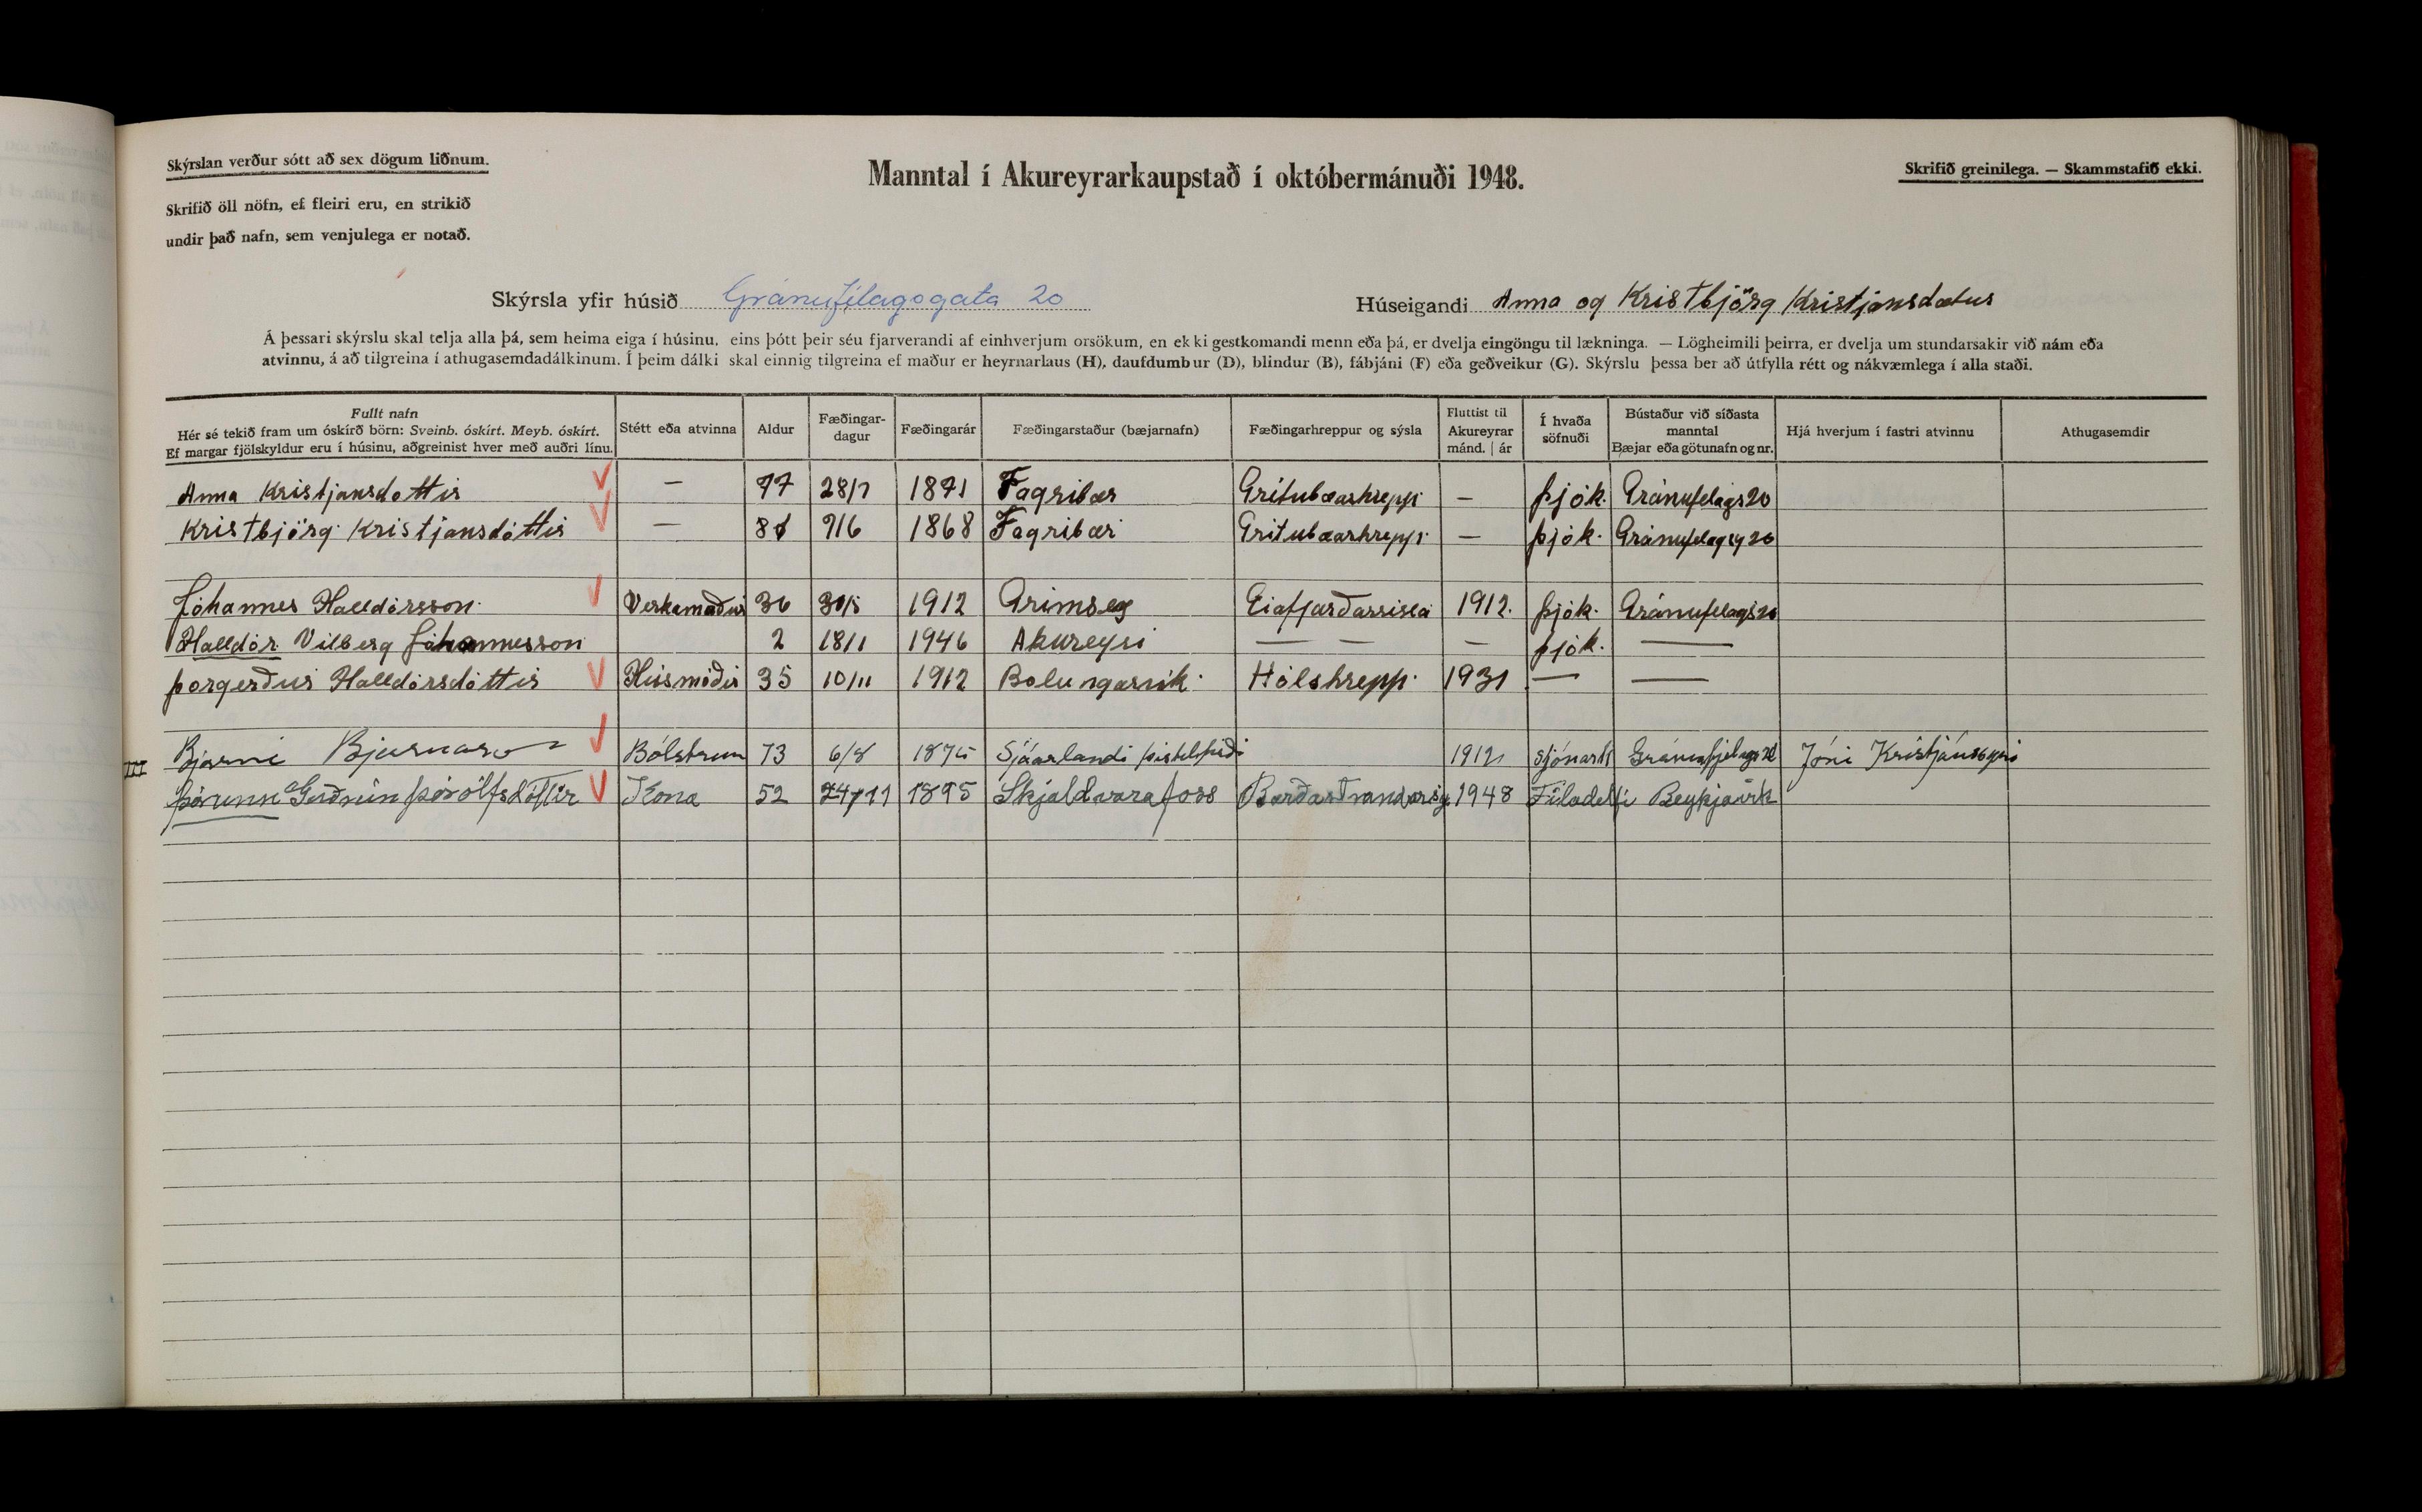 Skýrslan verður sótt að sex dögum liðnum.
Manntal í Akureyrarkaupstað í októbermánuði 1948.
Skrifið greinilega. — Skammstafið ekki.
Skrifið öll nöfn, ef fleiri eru, en strikið
undir það nafn, sem venjulega er notað.
Skýrsla yfir húsið Gránufélagsgata 20
Húseigandi Anna og Kristbjörg Kristjansdætur
Á þessari skýrslu skal telja alla þá, sem heima eiga í húsinu, eins þótt þeir séu fjarverandi af einhverjum orsökum, en ekki gestkomandi menn eða þá, er dvelja eingöngu til lækninga. — Lögheimili þeirra, er dvelja um stundarsakir við nám eða
atvinnu, á að tilgreina í athugasemdadálkinum. Í þeim dálki skal einnig tilgreina ef maður er heyrnarlaus (H), daufdumbur (D), blindur (B), fábjáni (F) eða geðveikur (G). Skýrslu þessa ber að útfylla rétt og nákvæmlega í alla staði.
Fullt nafn
Hér sé tekið fram um óskírð börn: Sveinb. óskírt. Meyb. óskírt.
Ef margar fjölskyldur eru í húsinu, aðgreinist hver með auðri línu.
Stétt eða atvinna
Aldur
Fæðingar-
dagur
Fæðingarár
Fæðingarstaður (bæjarnafn)
Fæðingarhreppur og sýsla
Fluttist til
Akureyrar
mánd. | ár
Í hvaða
söfnuði
Bústaður við síðasta
manntal
Bæjar eða götunafn og nr.
Hjá hverjum í fastri atvinnu
Athugasemdir
Anna Kristjansdottir — 77 28/7 1871 Fagribær Grítubæarhreppi — þjók. Gránufelags 20
Kristbjörg Kristjansdóttir — 80 9/6 1868 Fagribær Gritubæarhreppi — þjók. 20
Jóhannes Halldórsson Verkamaður 36 30/5 1912 Grimsey 1912. þjók. Gránufelags 20
Halldór Vilberg Jóhannesson 2 18/1 1946 Akureyri — — — þjók. —
Þorgerður Halldórsdóttir Húsmóðir 35 10/11 1912 Bolungarvík Hólshrepp. 1931 — —
Bjarni Bjarnason Bólstrun 73 6/8 1875 Sjóarlandi þistilfirði 1912 Sjónarh Gránufjelags 20 Jóni Kristjánssyni
III Þórunn Guðrún Þórólfsdóttir Kona 52 24/11 1895 Skjaldvarafoss Barðastrandarsý. 1948 Filadelfi Reykjavík